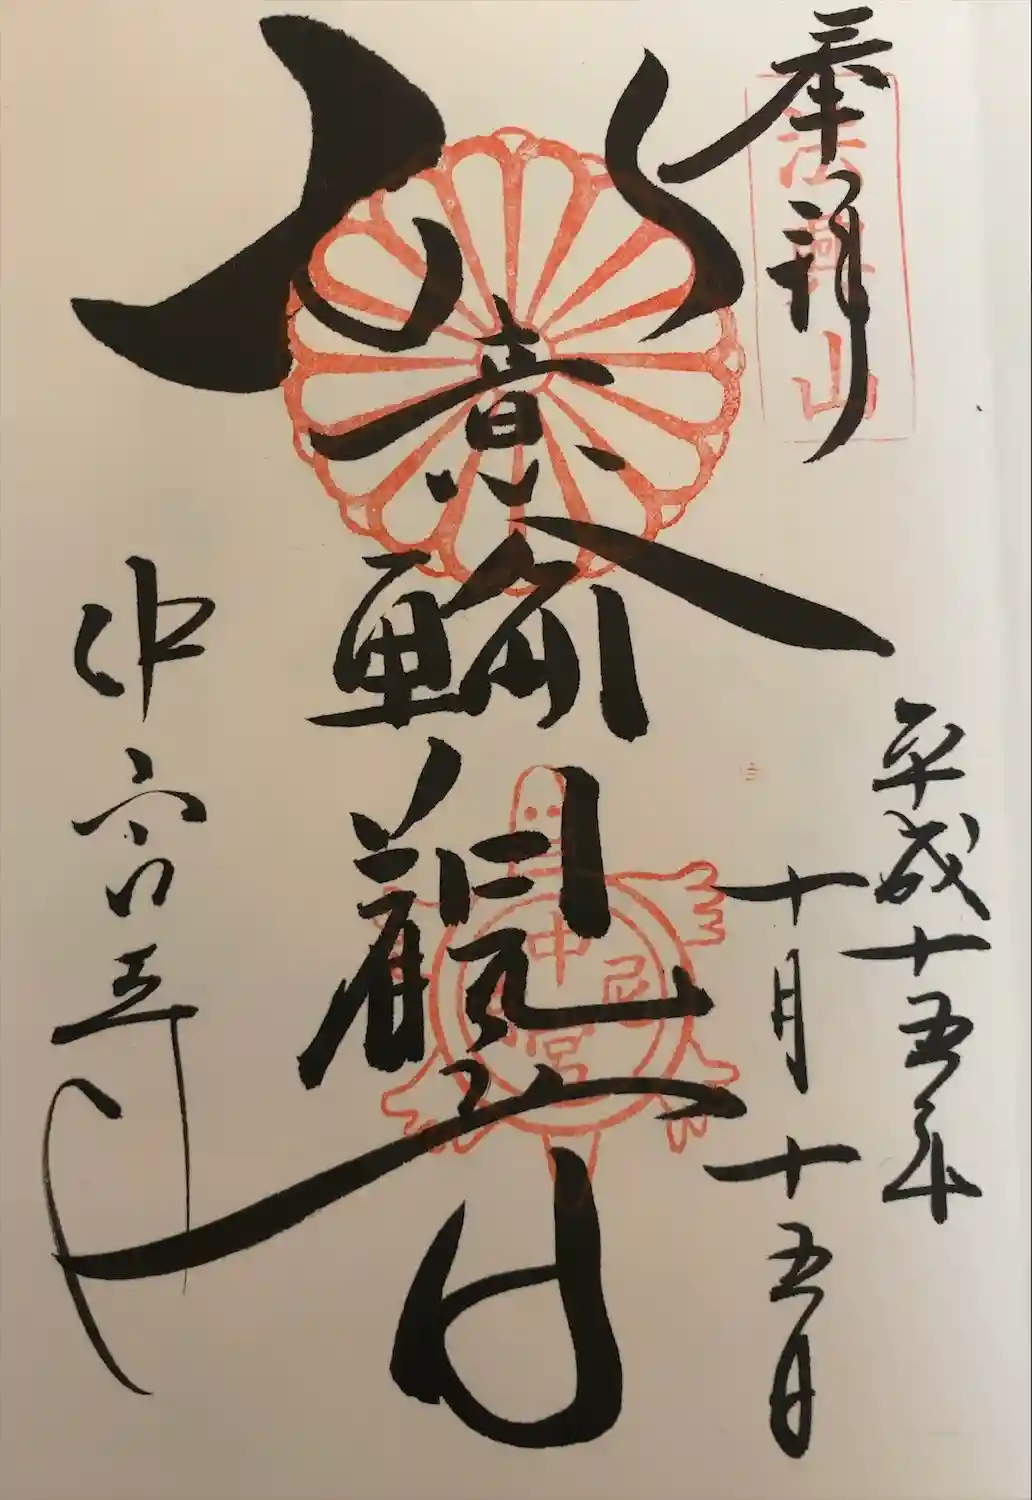 奉拝
法興山
平成十五年
十月十五日
如意輪観音
中宮尼
中宮寺